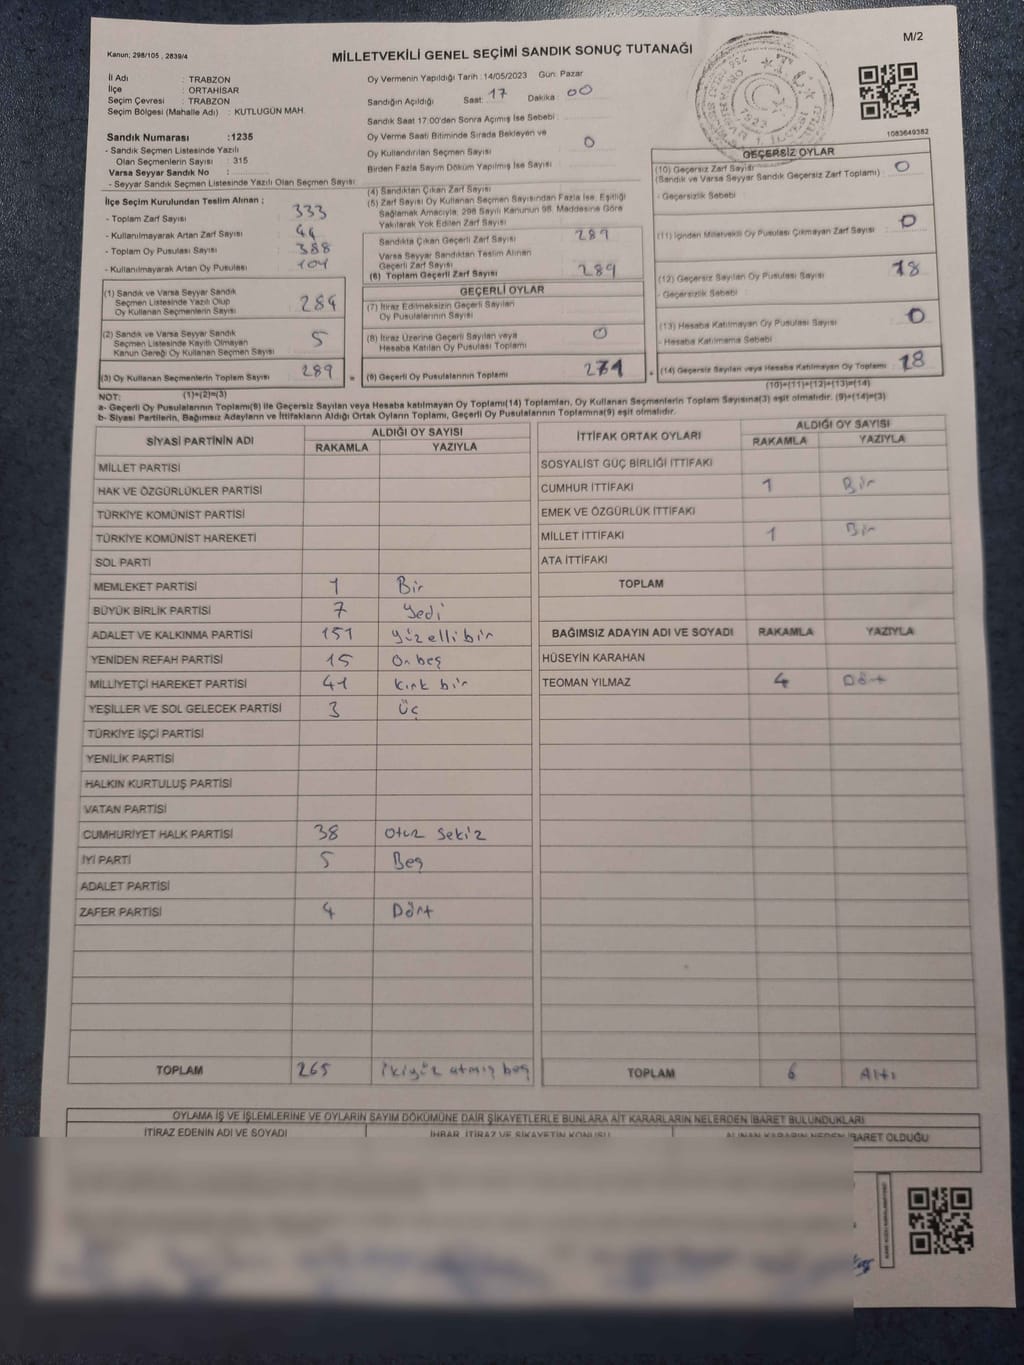 Kanun; 298/105 , 2839/4
MİLLETVEKİLİ GENEL SEÇİMİ SANDIK SONUÇ TUTANAĞI
M/2
İl Adı : TRABZON
İlçe : ORTAHİSAR
Seçim Çevresi : TRABZON
Seçim Bölgesi (Mahalle Adı) : KUTLUGÜN MAH.
Sandık Numarası :1235
- Sandık Seçmen Listesinde Yazılı
Olan Seçmenlerin Sayısı : 315
Varsa Seyyar Sandık No :
- Seyyar Sandık Seçmen Listesinde Yazılı Olan Seçmen Sayısı
Oy Vermenin Yapıldığı Tarih :14/05/2023 Gün: Pazar
Sandığın Açıldığı Saat: 17 Dakika 00
Sandık Saat 17:00'den Sonra Açılmış İse Sebebi
Oy Verme Saati Bitiminde Sırada Bekleyen ve
Oy Kullandırılan Seçmen Sayısı 0
Birden Fazla Sayım Döküm Yapılmış İse Sayısı
1083649382
İlçe Seçim Kurulundan Teslim Alınan ;
- Toplam Zarf Sayısı 333
- Kullanılmayarak Artan Zarf Sayısı 44
- Toplam Oy Pusulası Sayısı 388
- Kullanılmayarak Artan Oy Pusulası 104
(1) Sandık ve Varsa Seyyar Sandık
Seçmen Listesinde Yazılı Olup
Oy Kullanan Seçmenlerin Sayısı 284
(2) Sandık ve Varsa Seyyar Sandık
Seçmen Listesinde Kayıtlı Olmayan
Kanun Gereği Oy Kullanan Seçmen Sayısı 5
(3) Oy Kullanan Seçmenlerin Toplam Sayısı 289
(1)+(2)=(3)
(4) Sandıktan Çıkan Zarf Sayısı
(5) Zarf Sayısı Oy Kullanan Seçmen Sayısından Fazla İse, Eşitliği
Sağlamak Amacıyla; 298 Sayılı Kanunun 98. Maddesine Göre
Yakılarak Yok Edilen Zarf Sayısı
Sandıkta Çıkan Geçerli Zarf Sayısı 289
Varsa Seyyar Sandıktan Teslim Alınan
Geçerli Zarf Sayısı
(6) Toplam Geçerli Zarf Sayısı 289
GEÇERLİ OYLAR
(7) İtiraz Edilmeksizin Geçerli Sayılan
Oy Pusulalarının Sayısı
(8) İtiraz Üzerine Geçerli Sayılan veya
Hesaba Katılan Oy Pusulası Toplamı 0
= (9) Geçerli Oy Pusulalarının Toplamı 271
GEÇERSİZ OYLAR
(10) Geçersiz Zarf Sayısı
(Sandık ve Varsa Seyyar Sandık Geçersiz Zarf Toplamı) : 0
- Geçersizlik Sebebi
(11) İçinden Milletvekili Oy Pusulası Çıkmayan Zarf Sayısı 0
(12) Geçersiz Sayılan Oy Pusulası Sayısı 18
- Geçersizlik Sebebi :
(13) Hesaba Katılmayan Oy Pusulası Sayısı 0
- Hesaba Katılmama Sebebi
+ (14) Geçersiz Sayılan veya Hesaba Katılmayan Oy Toplamı : 18
(10)+(11)+(12)+(13)=(14)
NOT:
a- Geçerli Oy Pusulalarının Toplamı(9) ile Geçersiz Sayılan veya Hesaba katılmayan Oy Toplamı(14) Toplamları, Oy Kullanan Seçmenlerin Toplam Sayısına(3) eşit olmalıdır. (9)+(14)=(3)
b- Siyasi Partilerin, Bağımsız Adayların ve İttifakların Aldığı Ortak Oyların Toplamı, Geçerli Oy Pusulalarının Toplamına(9) eşit olmalıdır.
SİYASİ PARTİNİN ADI ALDIĞI OY SAYISI
RAKAMLA YAZIYLA
MİLLET PARTİSİ
HAK VE ÖZGÜRLÜKLER PARTİSİ
TÜRKİYE KOMÜNİST PARTİSİ
TÜRKİYE KOMÜNİST HAREKETİ
SOL PARTİ
MEMLEKET PARTİSİ 1 Bir
BÜYÜK BİRLİK PARTİSİ 7 Yedi
ADALET VE KALKINMA PARTİSİ 151 Yüzellibir
YENİDEN REFAH PARTİSİ 15 Onbeş
MİLLİYETÇİ HAREKET PARTİSİ 41 Kırk bir
YEŞİLLER VE SOL GELECEK PARTİSİ 3 Üç
TÜRKİYE İŞÇİ PARTİSİ
YENİLİK PARTİSİ
HALKIN KURTULUŞ PARTİSİ
VATAN PARTİSİ
CUMHURİYET HALK PARTİSİ 38 Otuz Sekiz
İYİ PARTİ 5 Beş
ADALET PARTİSİ
ZAFER PARTİSİ 4 Dört
TOPLAM 265 İkiyüz atmış beş
İTTİFAK ORTAK OYLARI ALDIĞI OY SAYISI
RAKAMLA YAZIYLA
SOSYALİST GÜÇ BİRLİĞİ İTTİFAKI
CUMHUR İTTİFAKI 1 Bir
EMEK VE ÖZGÜRLÜK İTTİFAKI
MİLLET İTTİFAKI 1 Bir
ATA İTTİFAKI
TOPLAM
BAĞIMSIZ ADAYIN ADI VE SOYADI RAKAMLA YAZIYLA
HÜSEYİN KARAHAN
TEOMAN YILMAZ 4 Dört
TOPLAM 6 Altı
OYLAMA İŞ VE İŞLEMLERİNE VE OYLARIN SAYIM DÖKÜMÜNE DAİR ŞİKAYETLERLE BUNLARA AİT KARARLARIN NELERDEN İBARET BULUNDUKLARI
İTİRAZ EDENİN ADI VE SOYADI İHBAR, İTİRAZ VE ŞİKAYETİN KONUSU ALINAN KARARIN NEDEN İBARET OLDUĞU